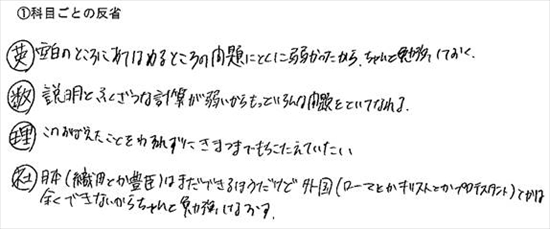 ①科目ごとの反省
英 空白のところにあてはめるところの問題にとくに弱かったから、ちゃんと勉強しておく。
数 説明とふくざつな計算が弱いからもっといろんな問題をといてなれる。
理 このおぼえたことをわすれずにきまつまでもちこたえていたい
社 日本(織田とか豊臣)はまだできるほうだけど外国(ローマとかキリストとかプロテスタント)とかは
全くできないからちゃんと勉強しなおす。